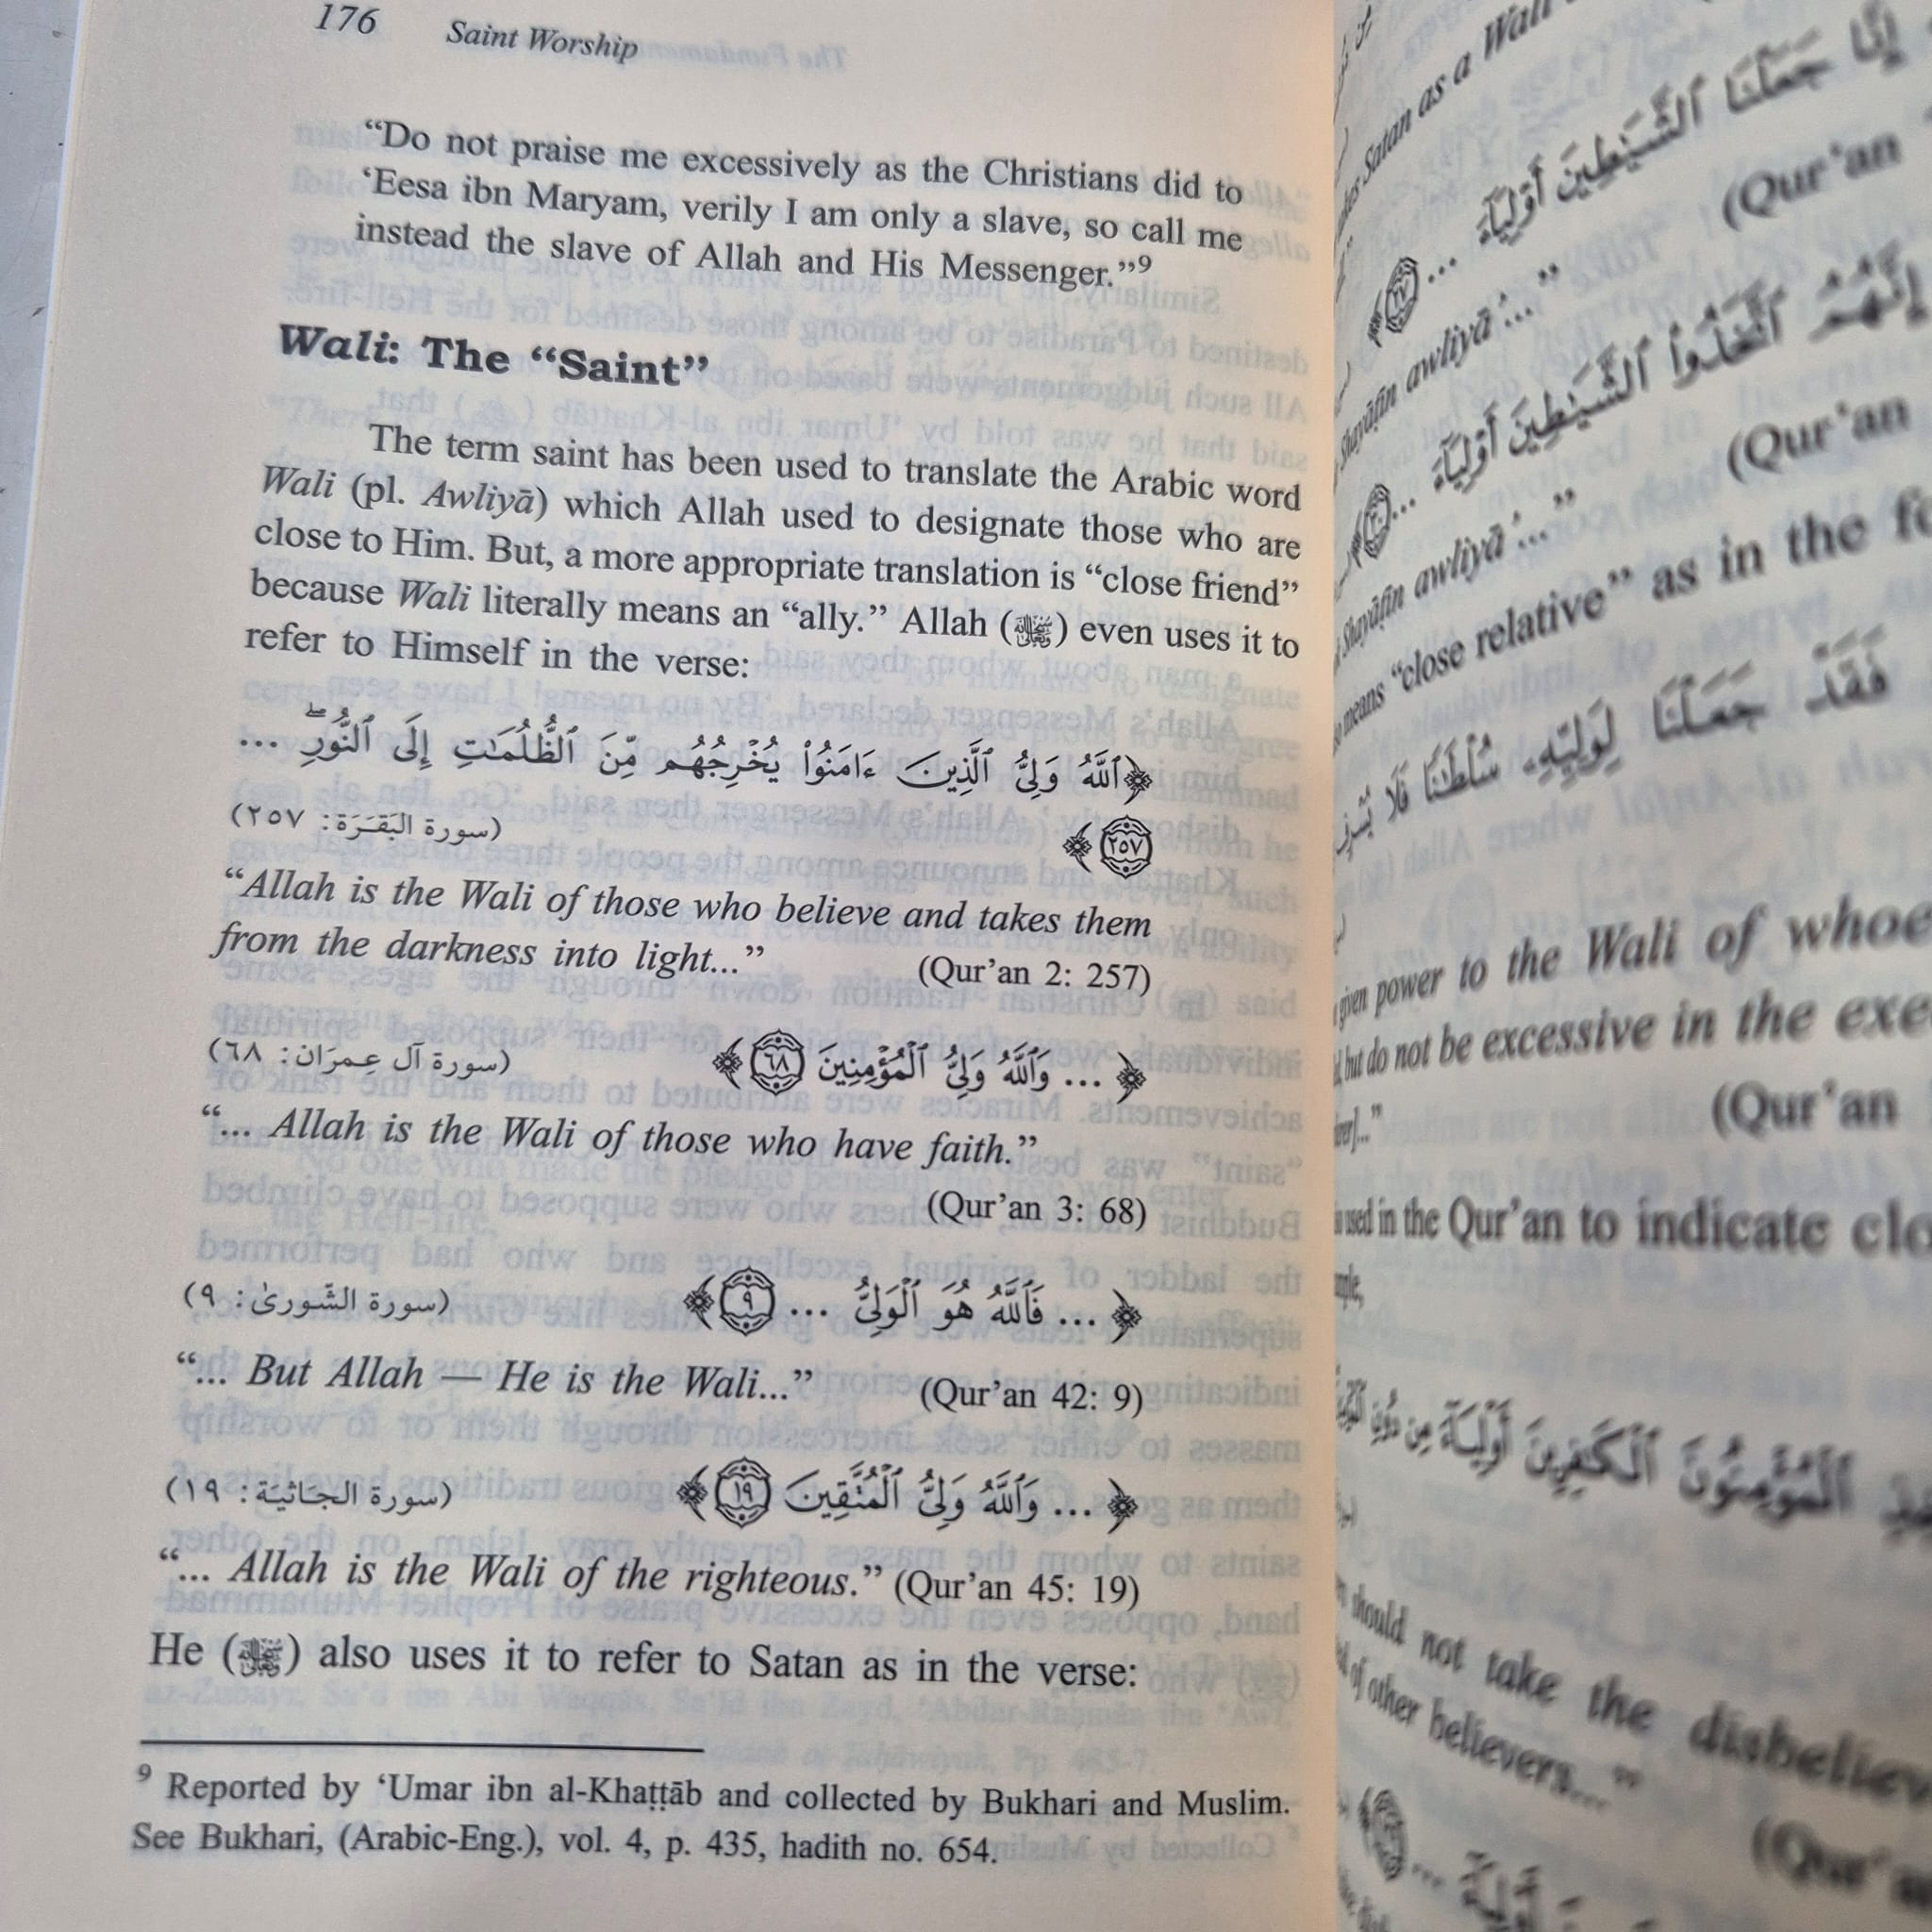 176 Saint Worship
“Do not praise me excessively as the Christians did to
‘Eesa ibn Maryam, verily I am only a slave, so call me
instead the slave of Allah and His Messenger.”⁹
Wali: The “Saint”
The term saint has been used to translate the Arabic word
Wali (pl. Awliyā) which Allah used to designate those who are
close to Him. But, a more appropriate translation is “close friend”
because Wali literally means an “ally.” Allah (ﷻ) even uses it to
refer to Himself in the verse:
﴿ٱللَّهُ وَلِىُّ ٱلَّذِينَ ءَامَنُوا۟ يُخْرِجُهُم مِّنَ ٱلظُّلُمَـٰتِ إِلَى ٱلنُّورِ ۖ ...
٢٥٧﴾ (سورة البَقَرَة: ٢٥٧)
“Allah is the Wali of those who believe and takes them
from the darkness into light...” (Qur’an 2: 257)
﴿ ... وَٱللَّهُ وَلِىُّ ٱلْمُؤْمِنِينَ ٦٨﴾ (سورة آل عِمرَان: ٦٨)
“... Allah is the Wali of those who have faith.”
(Qur’an 3: 68)
﴿ ... فَٱللَّهُ هُوَ ٱلْوَلِىُّ ... ٩﴾ (سورة الشّورىٰ: ٩)
“... But Allah — He is the Wali...” (Qur’an 42: 9)
﴿ ... وَٱللَّهُ وَلِىُّ ٱلْمُتَّقِينَ ١٩﴾ (سورة الجَاثيَة: ١٩)
“... Allah is the Wali of the righteous.” (Qur’an 45: 19)
He (ﷻ) also uses it to refer to Satan as in the verse:
⁹ Reported by ‘Umar ibn al-Khaṭṭāb and collected by Bukhari and Muslim.
See Bukhari, (Arabic-Eng.), vol. 4, p. 435, hadith no. 654.
Satan as a Wali
إِنَّا جَعَلْنَا ٱلشَّيَـٰطِينَ أَوْلِيَآءَ ...
(Qur’an
awliyā’...”
إِنَّهُمُ ٱتَّخَذُوا۟ ٱلشَّيَـٰطِينَ أَوْلِيَآءَ ...
(Qur’an
Shayāṭīn awliyā’...”
means “close relative” as in the
فَقَدْ جَعَلْنَا لِوَلِيِّهِۦ سُلْطَـٰنًا فَلَا
given power to the Wali of
but do not be excessive in the
(Qur’an
used in the Qur’an to indicate
ٱلْمُؤْمِنُونَ ٱلْكَـٰفِرِينَ أَوْلِيَآءَ مِن دُونِ
should not take the
of other believers...”
(Qur’an